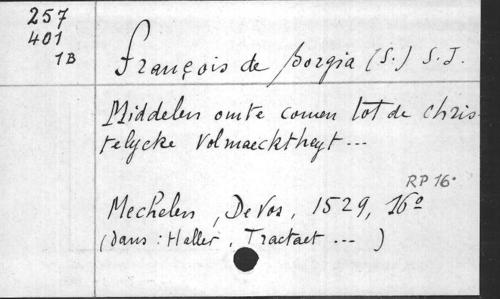 257
401
1B
François de Borgia (S.) S.J.
Middelen omte comen tot de chris-
telycke volmaecktheyt ...
RP 16°
Mechelen, De Vos, 1529, 16°
(dans : Haller, Tractaet ... )